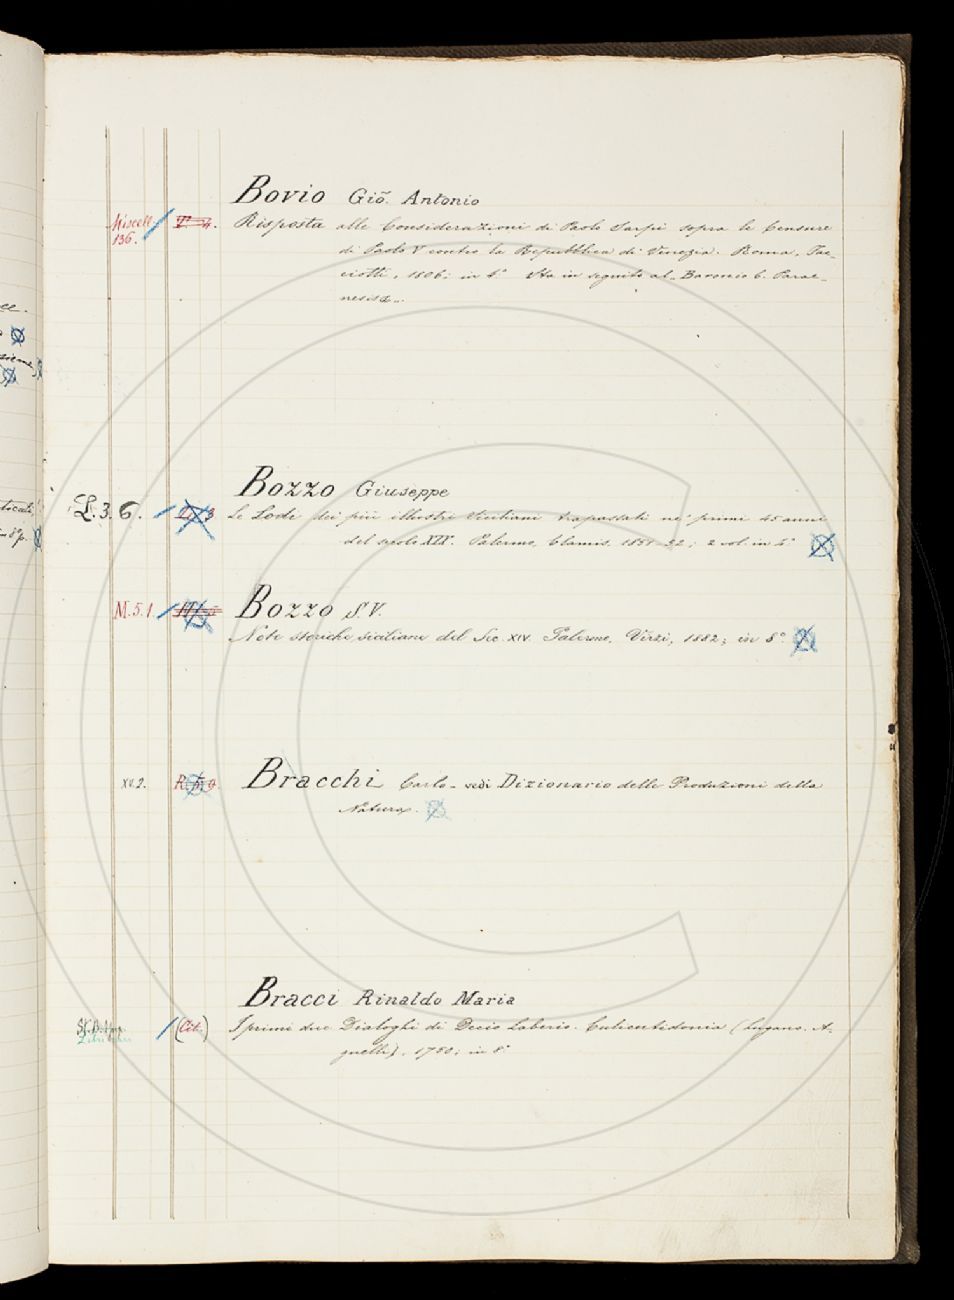 Bovio Giõ. Antonio
Miscell. 136.
Risposta alle Considerazioni di Paolo Sarpi sopra le Censure
di Paolo V contro la Repubblica di Venezia. Roma, Fac-
ciotti, 1606; in 4° Sta in seguito al Baronio C. Parae-
nesis &.
Bozzo Giuseppe
L.3.6.
Le Lodi dei più illustri Siciliani trapassati ne' primi 45 anni
del secolo XIX. Palermo, Clamis. 1851-52; 2 vol. in 4°
Bozzo S.V.
M.5.1
Note storiche siciliane del Sec. XIV. Palermo. Virzi, 1882; in 8°
XV.2.
Bracchi Carlo - vedi Dizionario delle Produzioni della
Natura.
Bracci Rinaldo Maria
(Cit.)
I primi due Dialoghi di Decio Laberio. Culicutidonia (Lugano. A-
gnelli), 1750; in 8°